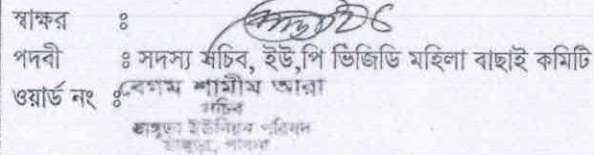 স্বাক্ষর ঃ
পদবী ঃ সদস্য সচিব, ইউ,পি ভিজিডি মহিলা বাছাই কমিটি
ওয়ার্ড নং ঃ
বেগম শামীম আরা
সচিব
ভাঙ্গুড়া ইউনিয়ন পরিষদ
ভাঙ্গুড়া, পাবনা